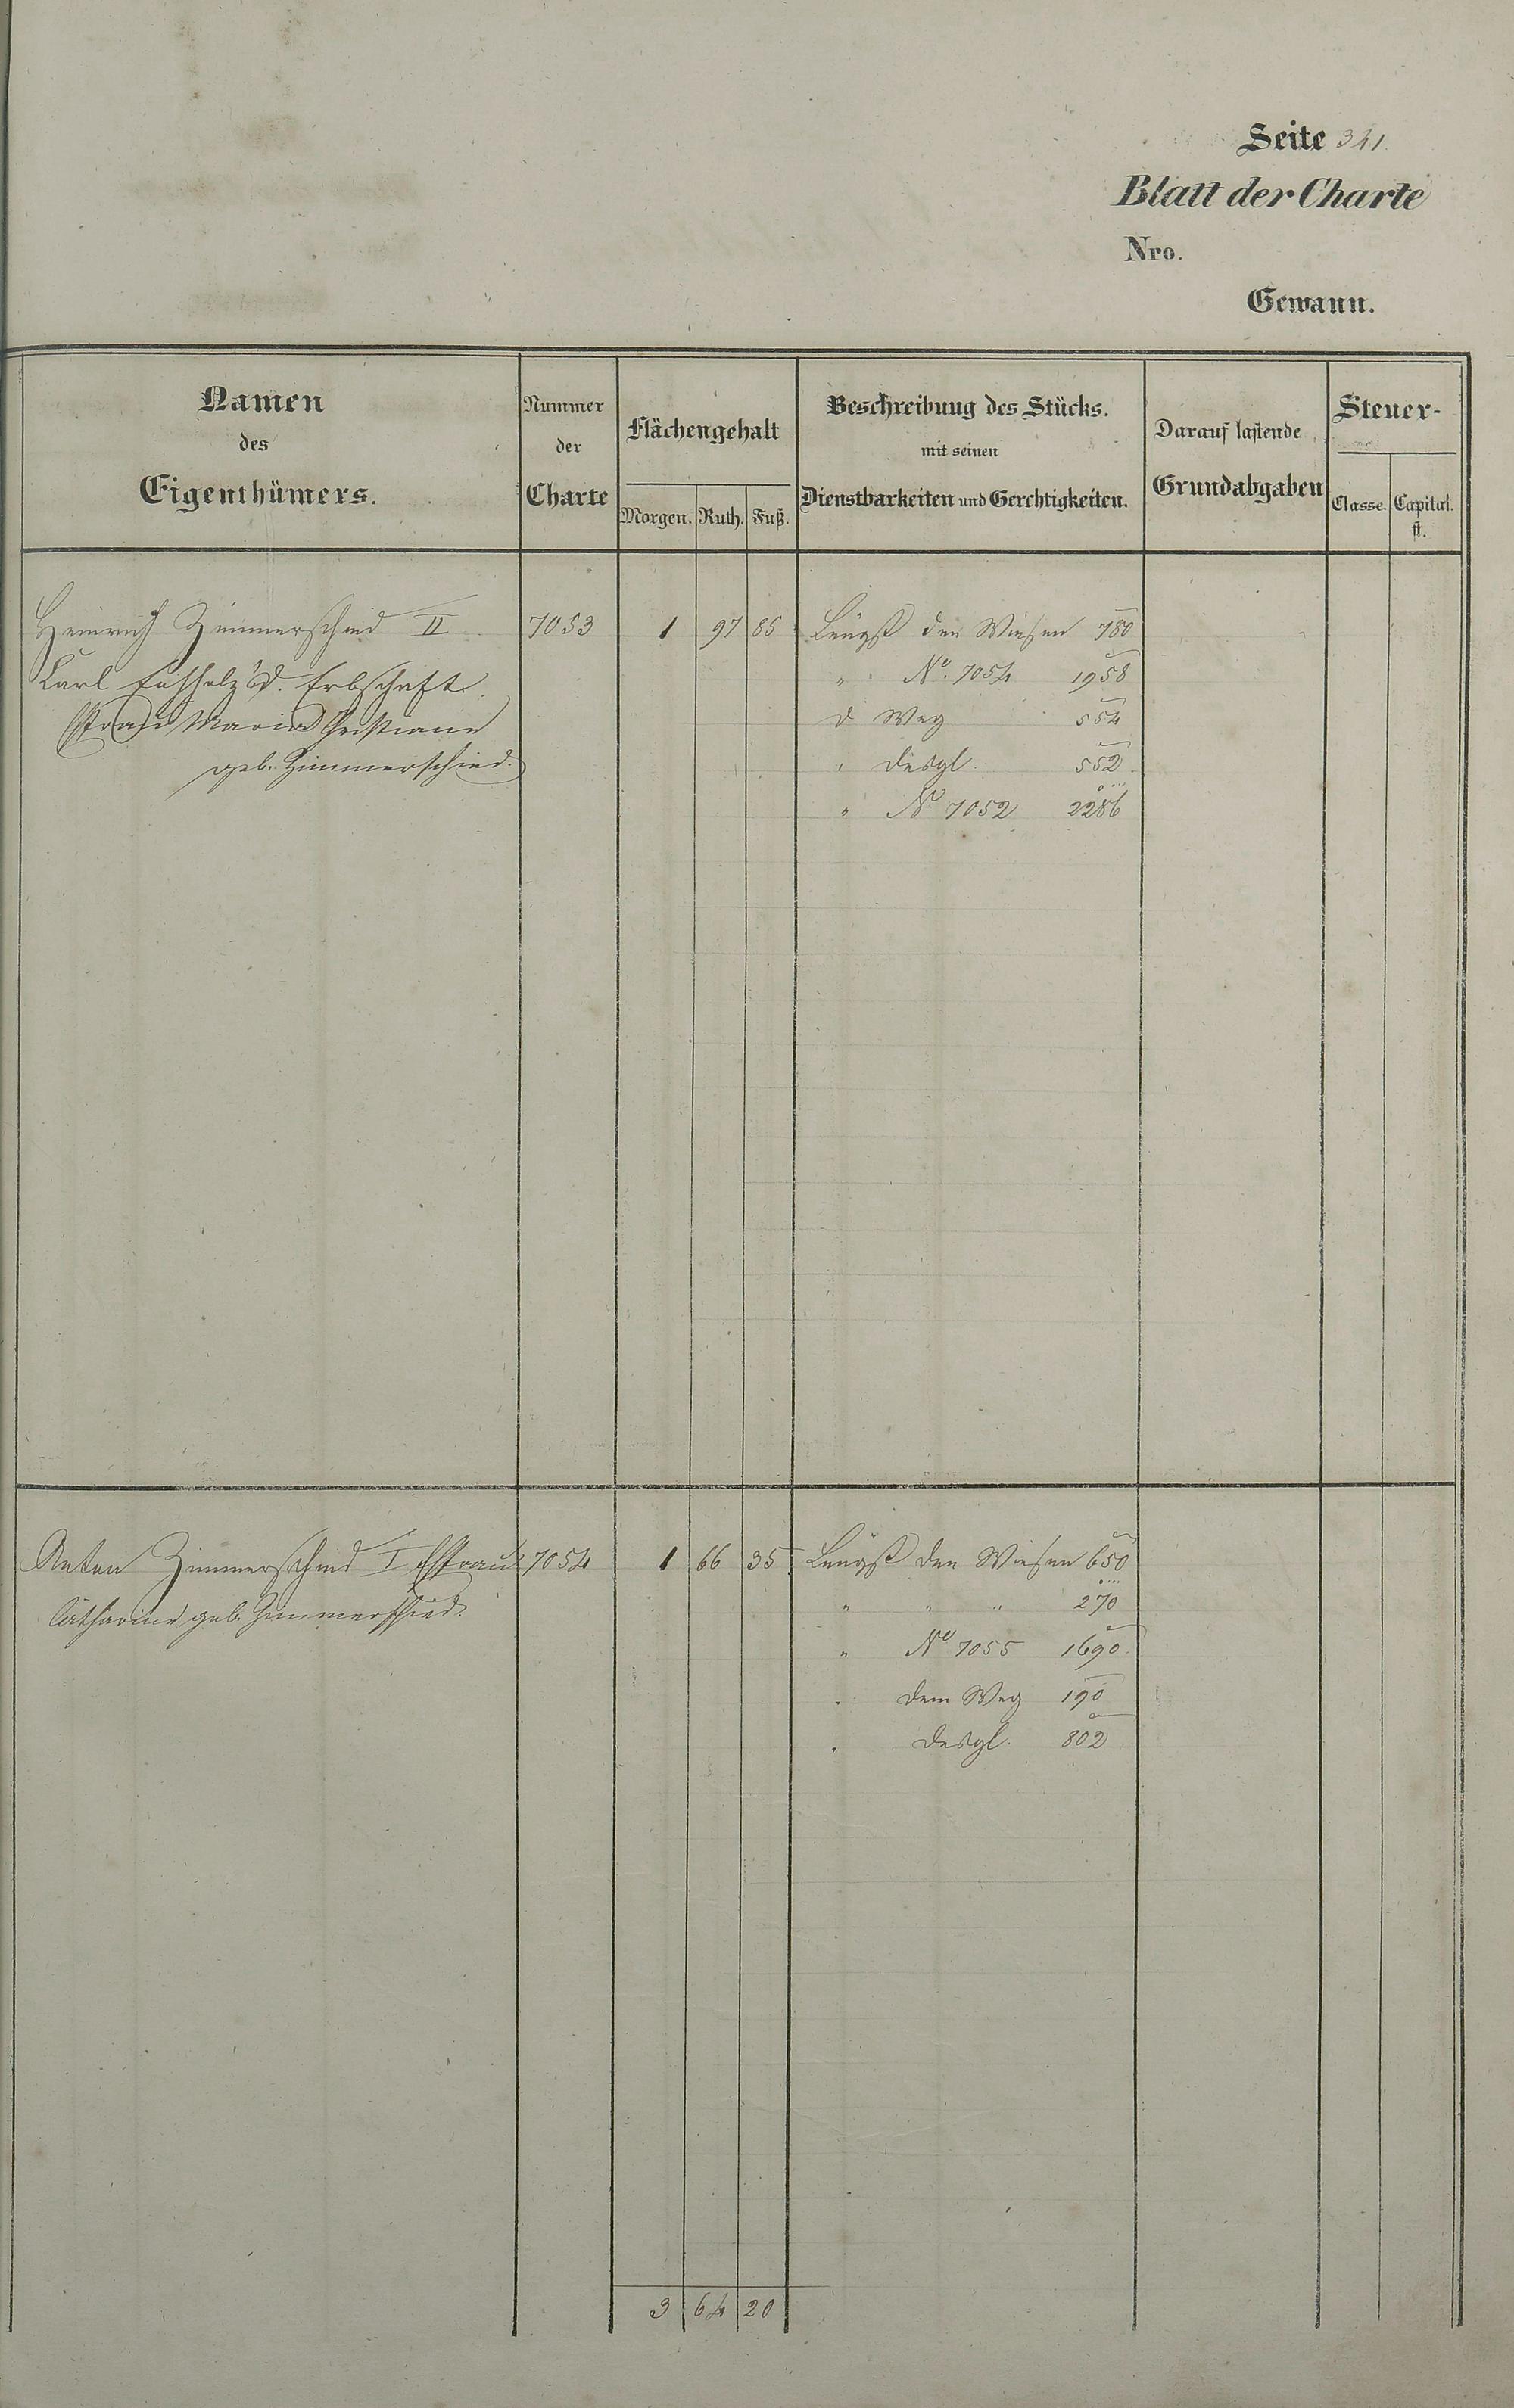 Seite 341
Blatt der Charte
Nro.
Gewann.
Namen des Eigenthümers.
Nummer der Charte
Flächengehalt
Morgen. Ruth. Fuß.
Beschreibung des Stücks. mit seinen Dienstbarkeiten und Gerechtigkeiten.
Darauf lastende Grundabgaben
Steuer-
Classe. Capital. fl.
Heinrich Zimmerschied II 7053 1 97 85 Längst den Wiesen 780
Karl d. Erbschaft. " No. 7054 1958
Maria Christiane d Weg 554
geb. Zimmerschied. " desgl. 552
" No 7052 2286
Anton Zimmerschied I Ehfrau 7054 1 66 35 Längst den Wiesen 650
Catharine geb. Zimmerschied. " " " 270
" No 7055 1690
" dem Weg 190
" desgl. 802
3 64 20